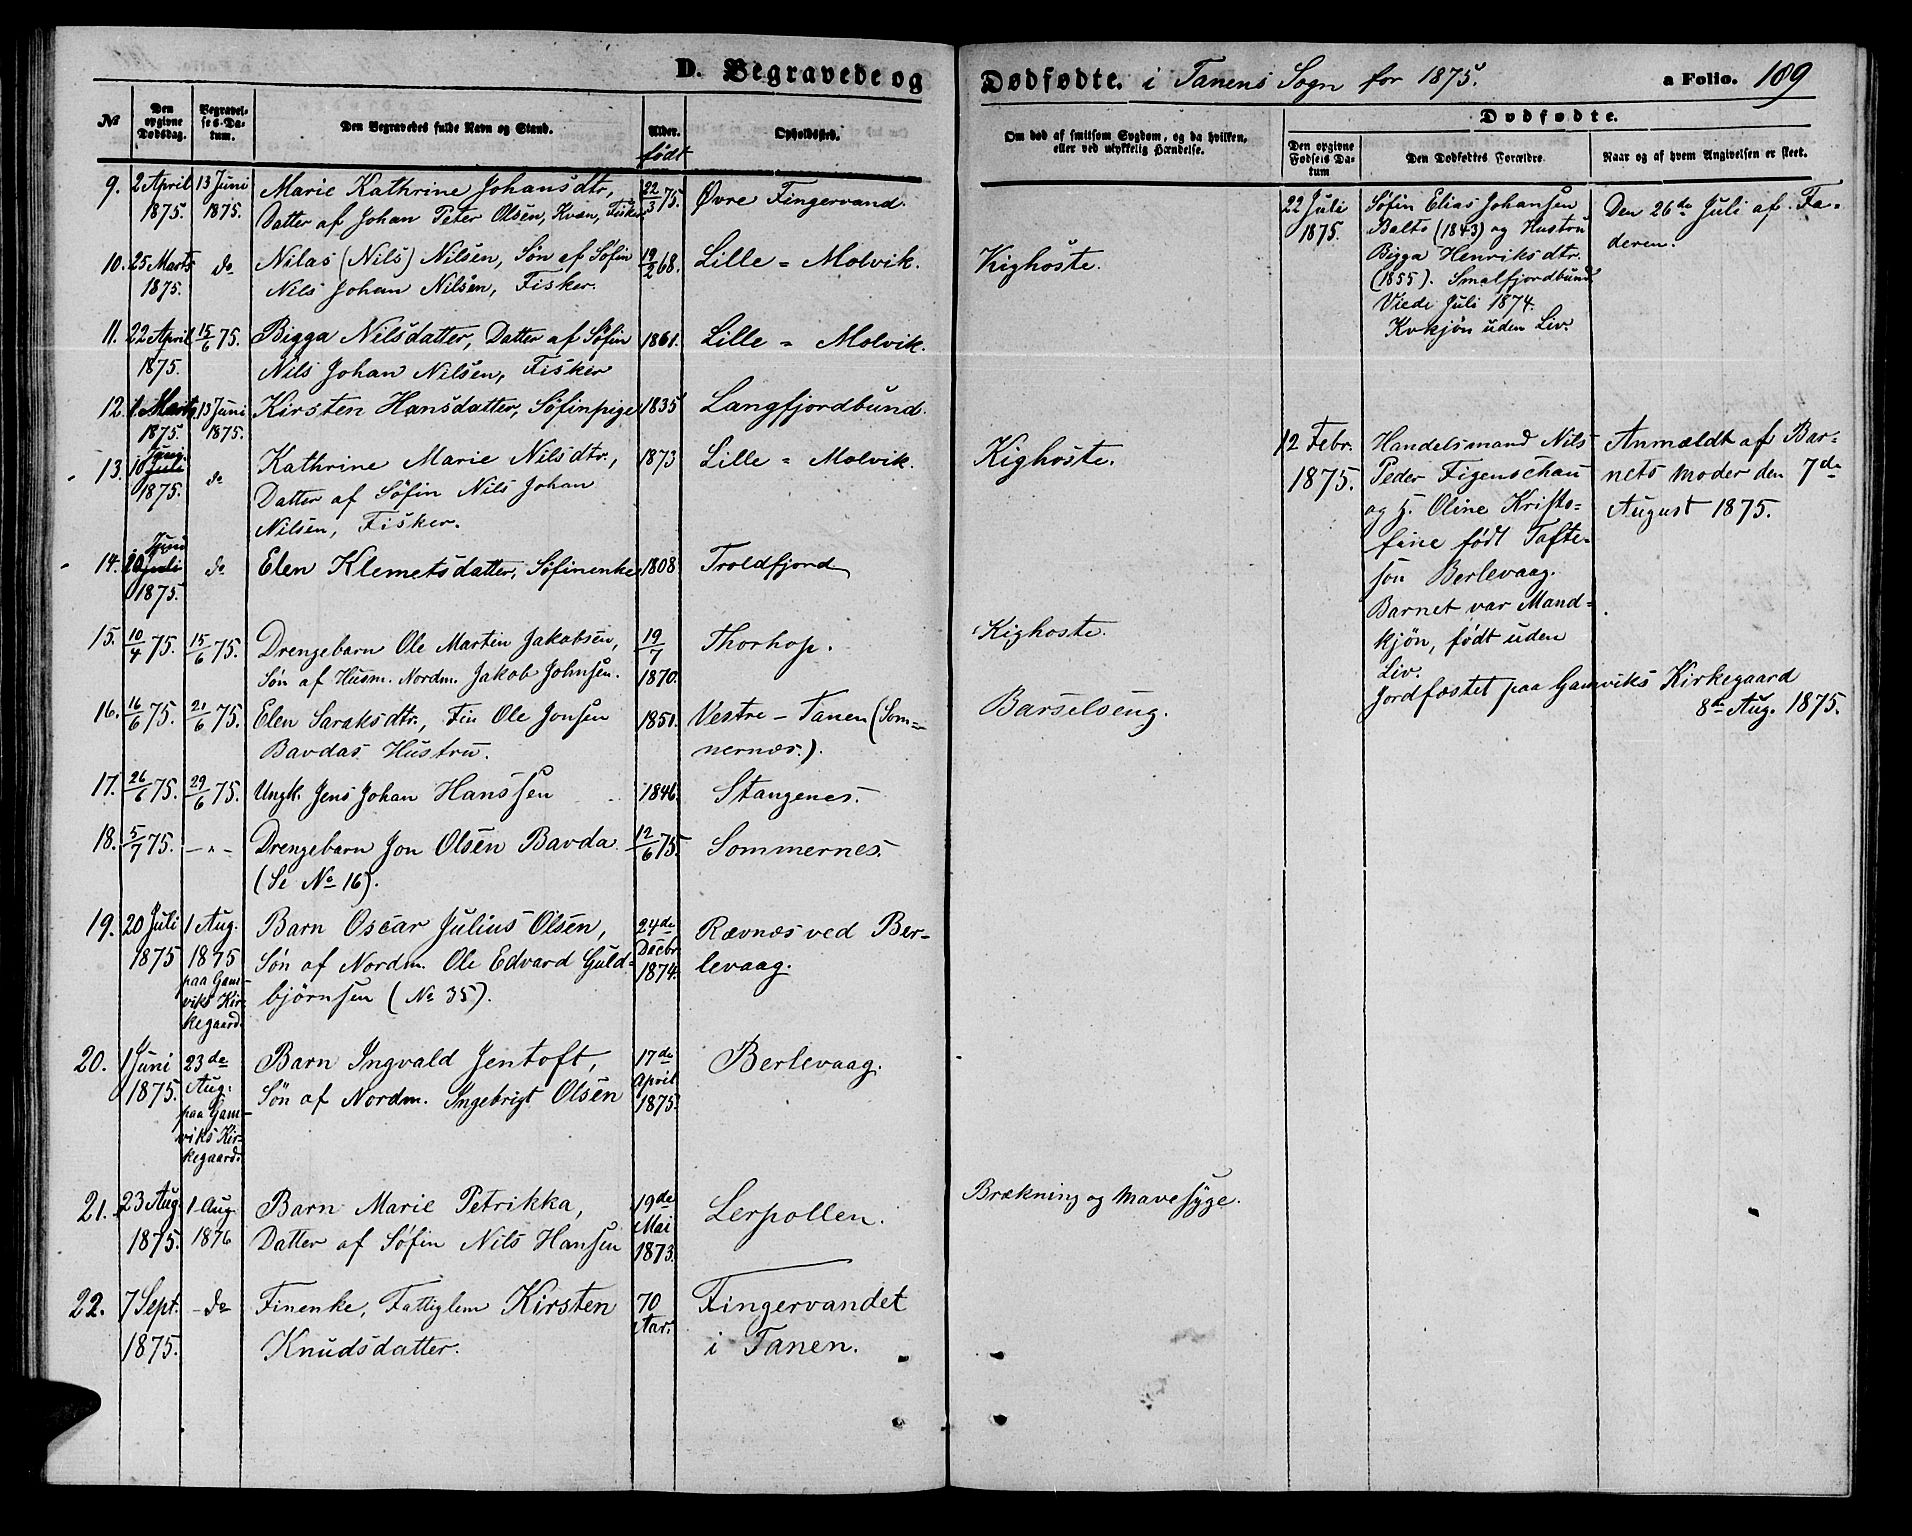 D. Begravede og Dødfødte. i Tanens Sogn for 1875. a Folio. 109
№
Den opgivne Dødsdag.
Begravelses-Datum.
Den Begravedes fulde Navn og Stand.
Alder. født
Opholdssted.
Om død af smitsom Sygdom, og da hvilken, eller ved ulykkelig Hændelse.
Dødfødte.
Den opgivne Fødsels Datum
Den Dødfødtes Forældre.
Naar og af hvem Angivelsen er skeet.
9. 2 April 13 Juni Marie Kathrine Johansdtr, 22/3 75. Øvre Fingervand.
1875. 1875. Datter af Johan Peter Olsen, Kvæn, Fisker
10. 25 Marts do Nilas (Nils) Nilsen, Søn af Søfin 19/2 68. Lille = Molvik. Kighoste.
1875. Nils Johan Nilsen, Fisker.
11. 22 April 15/6 75. Bigga Nilsdatter, Datter af Søfin 1861. Lille = Molvik.
1875. Nils Johan Nilsen, Fisker
12. 1 Marts 13 Juni Kirsten Hansdatter, Søfinpige 1835 Langfjordbund.
1875. 1875.
13. 10 Juli Juni do Kathrine Marie Nilsdtr., 1873 Lille = Molvik. Kighoste.
1875. Datter af Søfin Nils Johan
Nilsen, Fisker.
14. 20 Juli Juni do Elen Klemetsdatter, Søfinenke 1808 Troldfjord
1875.
15. 10/4 75. 15/6 75. Drengebarn Ole Martin Jakobsen, 19/7 Thorhop. Kighoste.
Søn af Husm. Nordm. Jakob Johnsen. 1870.
16. 16/6 75. 21/6 75. Elen Saraksdtr., Fin Ole Jonsen 1851. Vestre - Tanen (Som= Barselseng.
Bavdas Hustru. nernæs.).
17. 26/6 75. 29/6 75. Ungk. Jens Johan Hanssen 1846. Stangenes.
18. 5/7 75. - " - Drengebarn Jon Olsen Bavda. 12/6 75. Sommernes.
(Se No 16).
19. 20 Juli 1 Aug. Barn Oscar Julius Olsen, 24de Rævnæs ved Ber-
1875 1875 Søn af Nordm. Ole Edvard Guld- Decbr 1874. levaag.
paa Gam- viks Kir- kegaard. bjørnsen (No 35).
20. 1 Juni 23de Barn Ingvald Jentoft, 17de Berlevaag.
1875. Aug. Søn af Nordm. Ingebrigt Olsen April 1875.
paa Gam-
viks Kir-
kegaard.
21. 23 Aug. 1 Aug. Barn Marie Petrikka, 19de Lerpollen. Brækning og Mavesyge.
1875. 1876 Datter af Søfin Nils Hansen Mai 1873.
22. 7 Sept. - do Finenke, Fattiglem Kirsten 70 Fingervandet
1875. Knudsdatter. Aar. i Tanen.
22 Juli Søfin Elias Johansen Den 26de Juli af Fa-
1875. Balto (1843) og Hustru deren.
Bigga Henriksdtr.
(1855). Smalfjordbund
Viede Juli 1874.
Kvkjøn uden Liv.
12 Febr. Handelsmand Nils Anmældt af Bar-
1875. Peder Figenschau nets Moder den 7de
og H. Oline Kristo- August 1875.
fine født Tofte-
sön Berlevaag.
Barnet var Mand-
kjøn, født uden
Liv.
Jordfæstet paa Gamviks Kirkegaard
8de Aug. 1875.